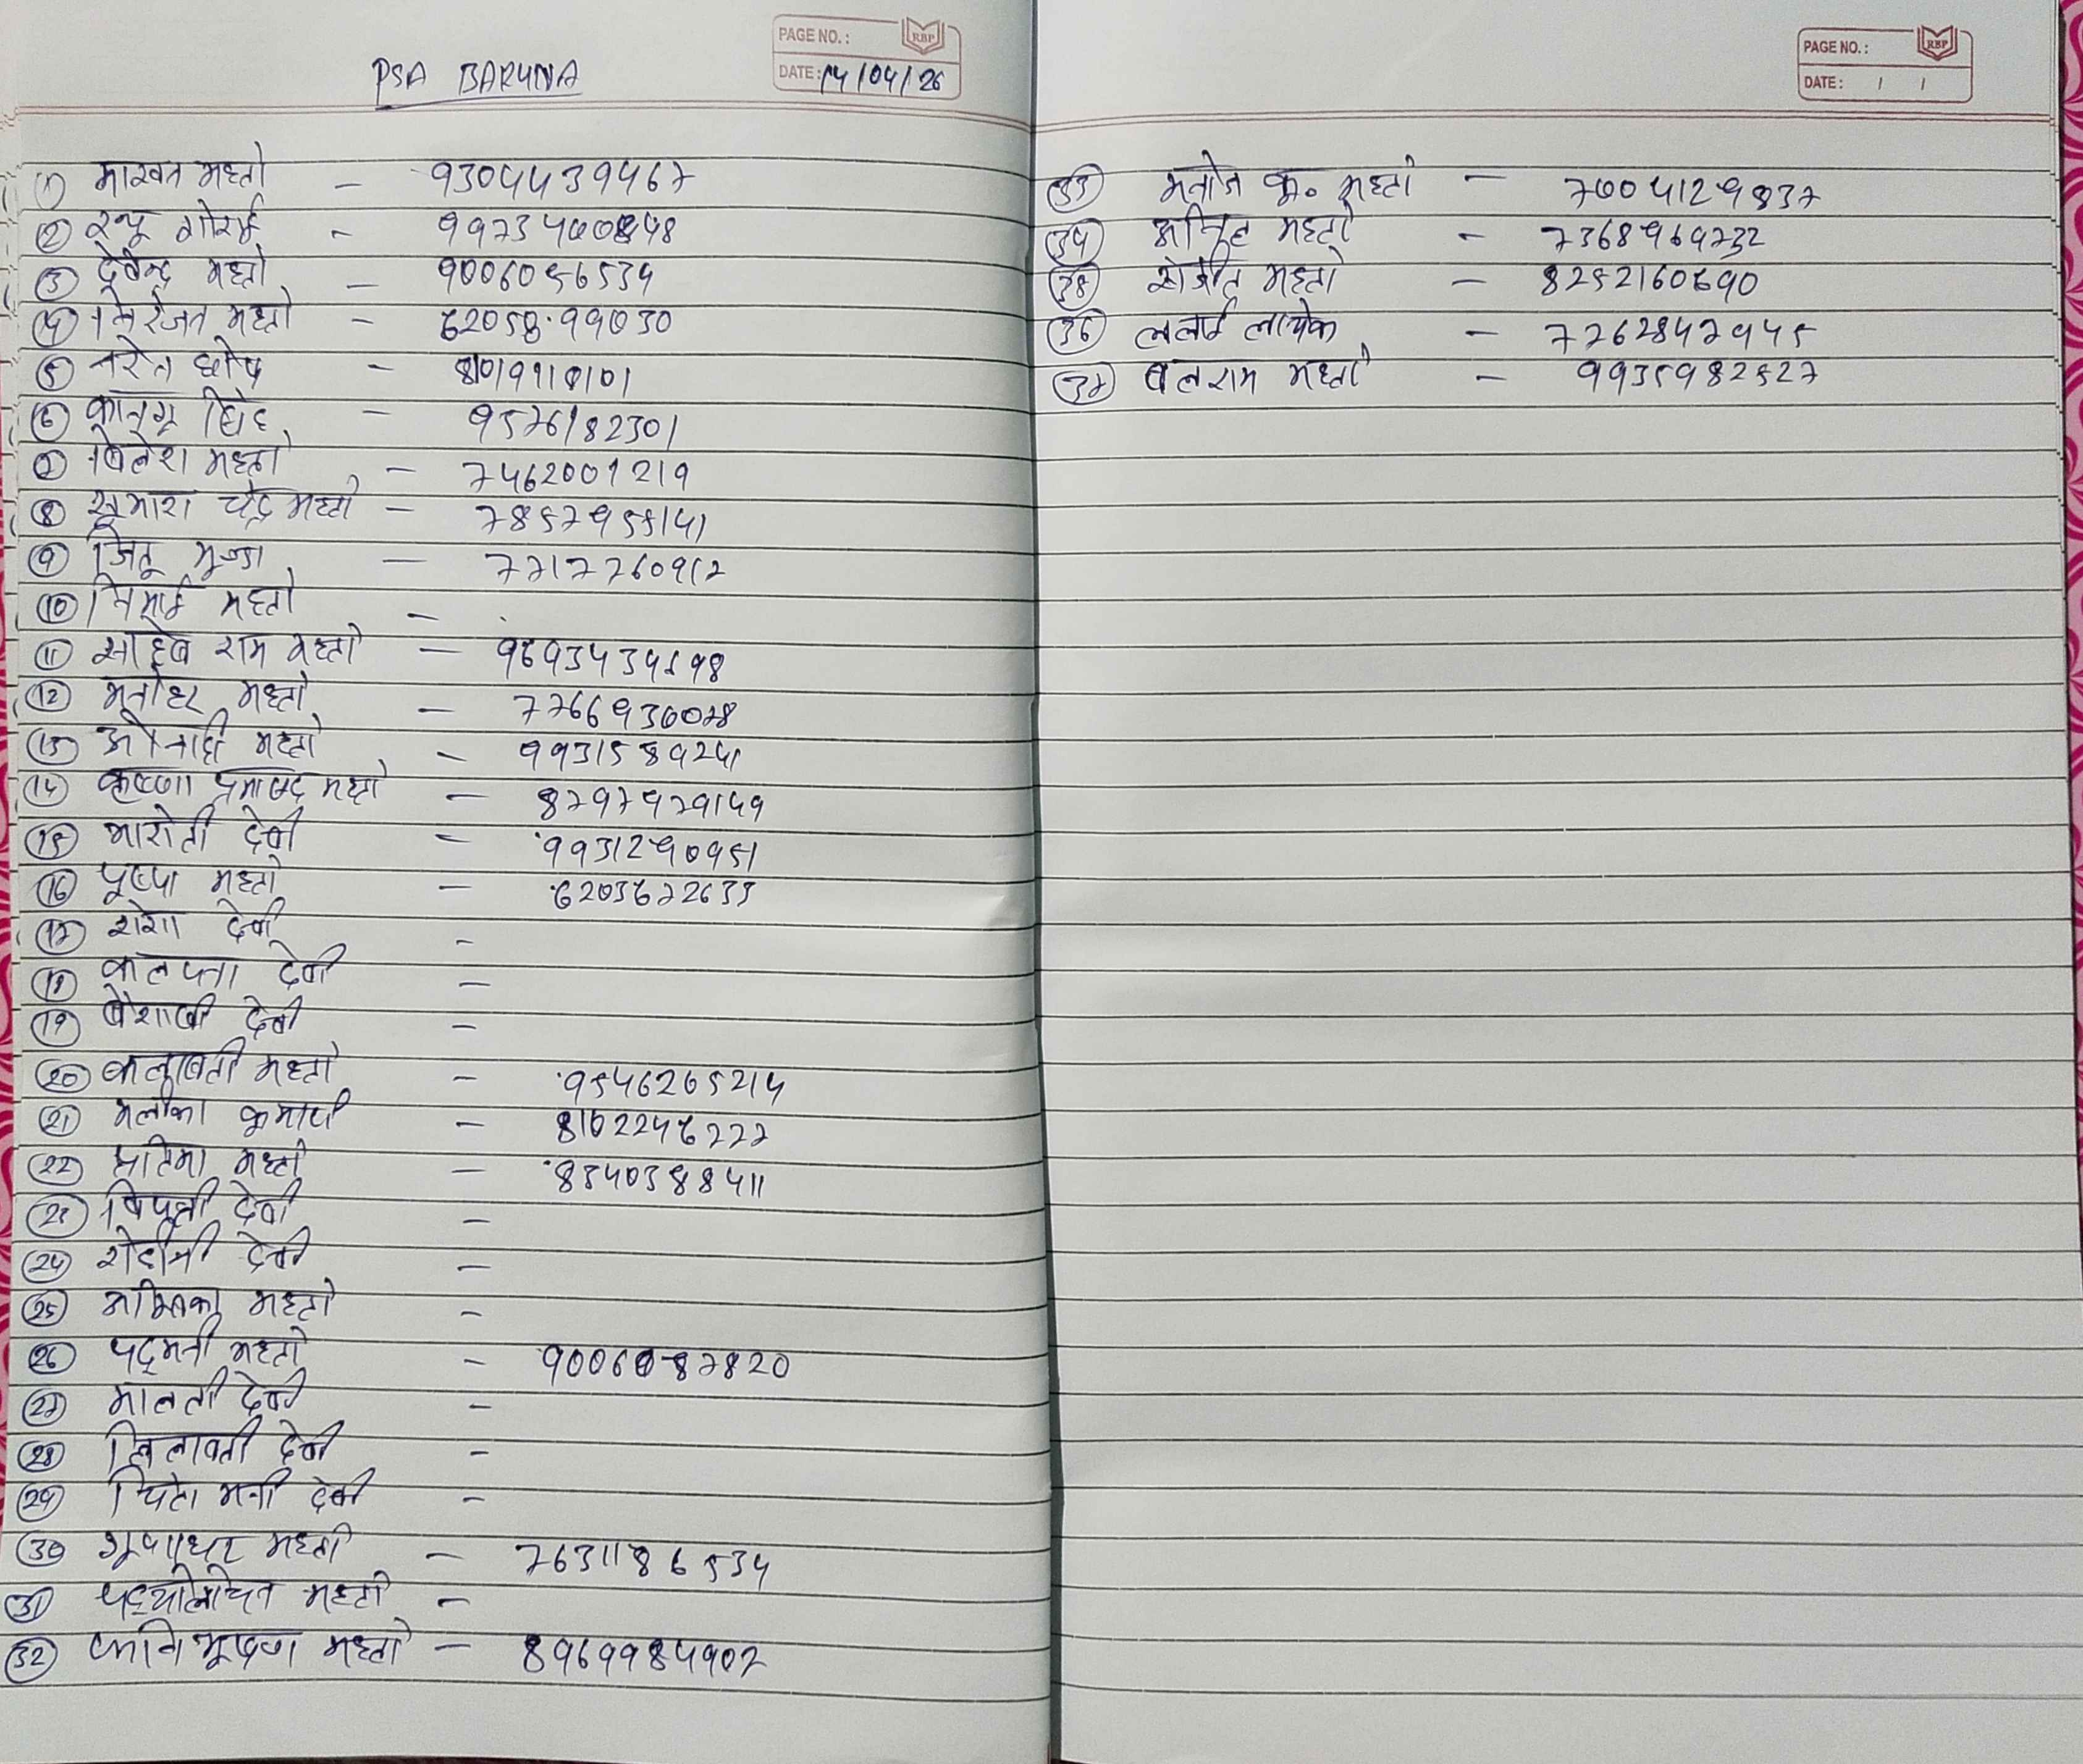 PSA BARUNA
PAGE NO.: RBP
DATE: 14/04/26
① माखन महतो - 9304439467
② रघू गोराई -
③ देवेन्द्र महतो - 9006056534
④ निरंजन महतो - 6205899030
⑤ नरेन घोष - 8019110101
⑥ कानगू सिंह - 9576182301
⑦ विलेश महतो - 7462001219
⑧ सूभाश चंद्र महतो - 7857955141
⑨ जितू मुण्डा - 7717760917
⑩ निमाई महतो -
⑪ साहेब राम महतो -
⑫ मनोहर महतो - 7766936078
⑬ महतो - 9931589241
⑭ कृष्णा महतो - 8797979149
⑮ भारोती देवी - 9931290951
⑯ पुष्पा महतो - 6203672633
⑰ देवी -
⑱ कल्पना देवी -
⑲ बैशाखी देवी -
⑳ कलावती महतो - 9546265214
㉑ मलीका कुमारी - 8102246777
㉒ प्रतिमा महतो - 8340388411
㉓ देवी -
㉔ रोहीनी देवी -
㉕ महतो -
㉖ पद्मनी महतो - 9006087820
㉗ मालती देवी -
㉘ लिलावती देवी -
㉙ चिंता मनी देवी -
㉚ गूणाधर महतो - 7631186534
㉛ महतो -
㉜ फनि भूषण महतो - 8969984907
PAGE NO.: RBP
DATE: / /
㉝ मनोज कु० महतो - 7004129837
㉞ महतो - 7368969732
㉟ महतो - 8252160690
㊱ ललाई लायेक - 7762847945
㊲ बलराम महतो - 9935982527